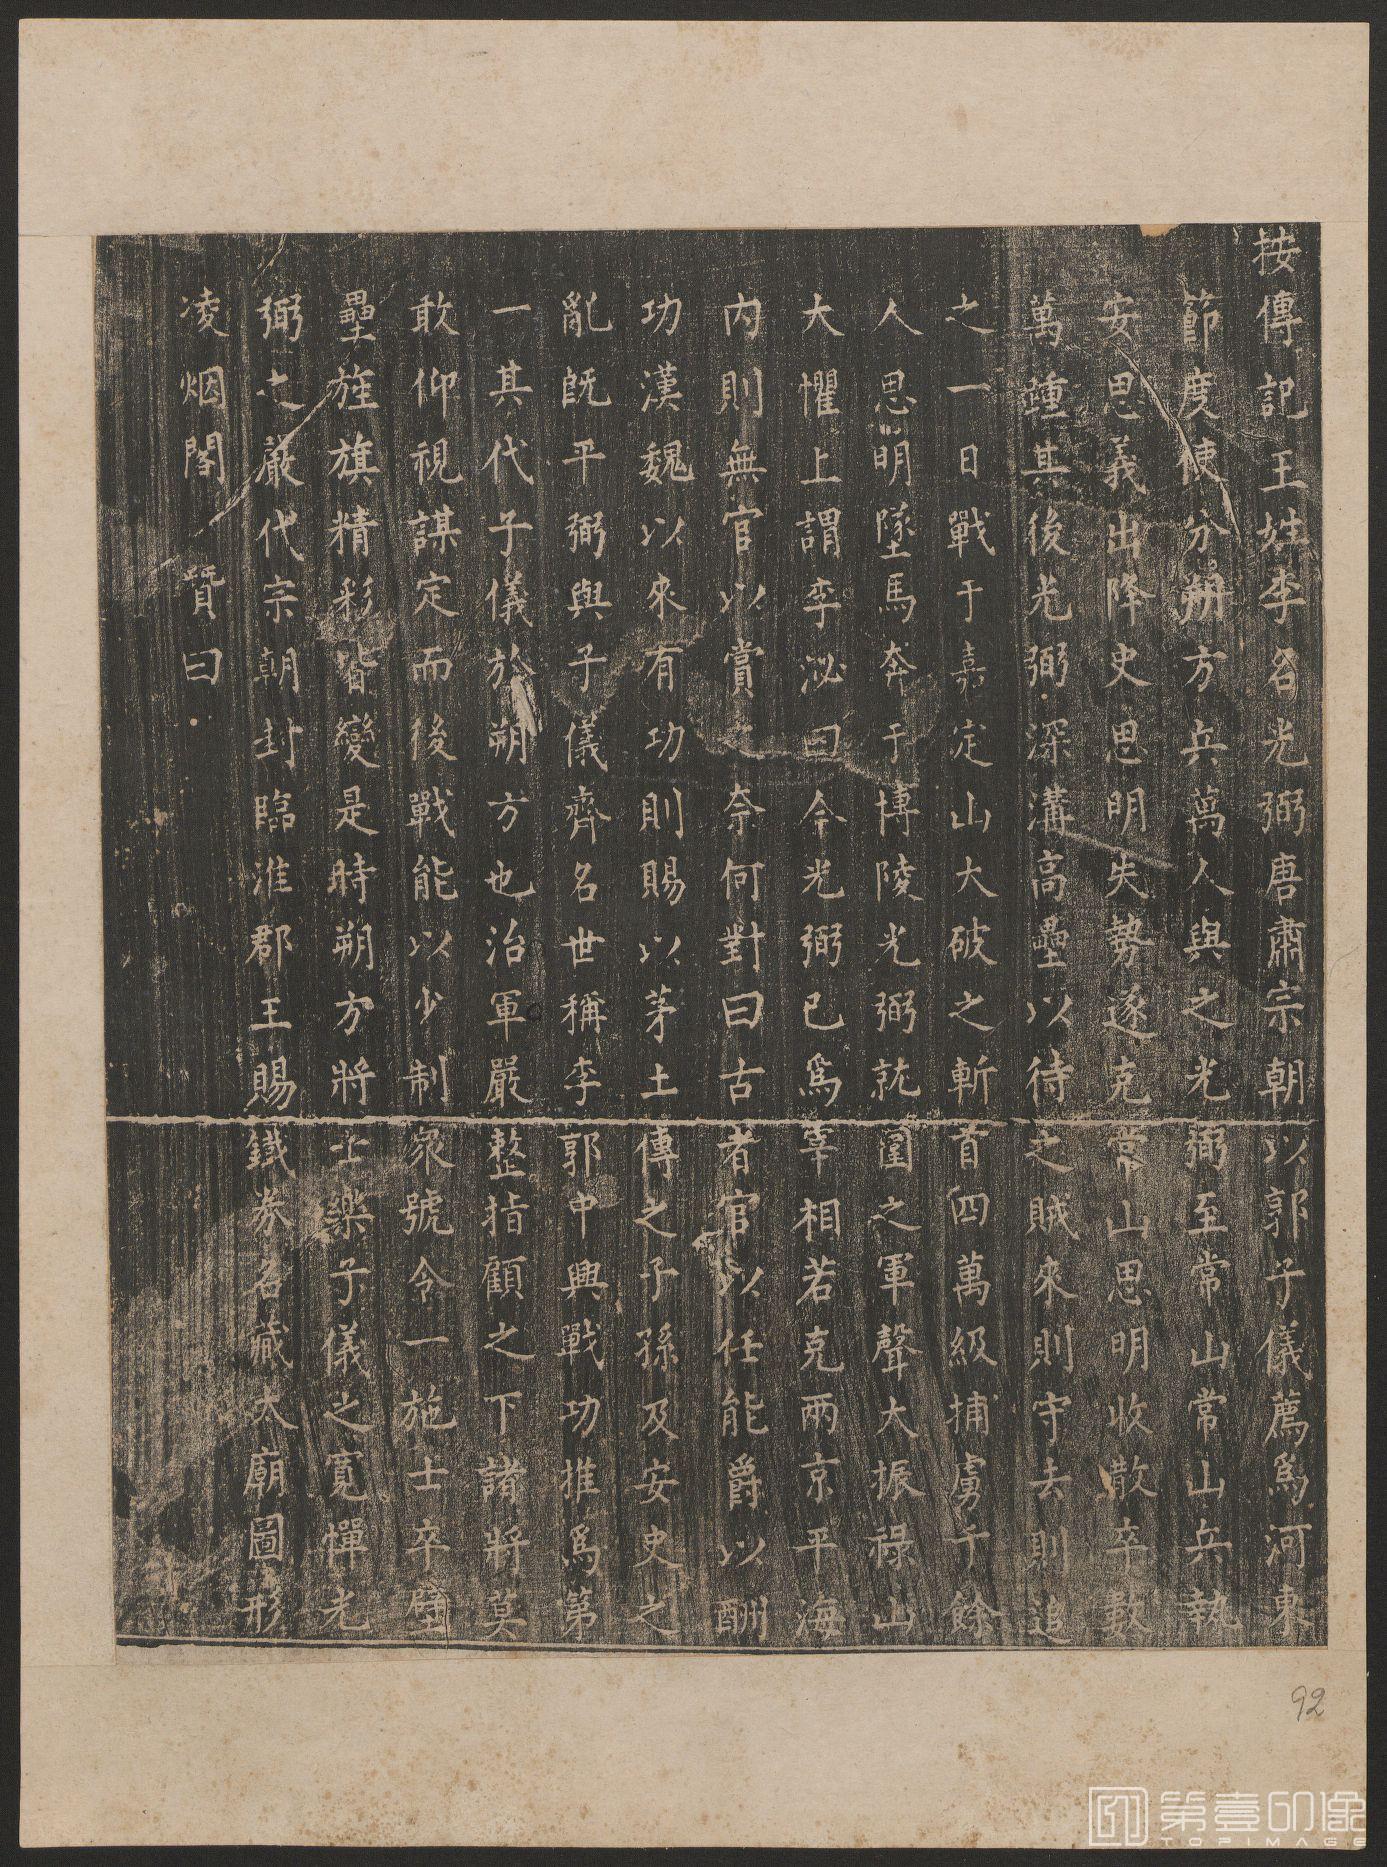 按傳記王姓李名光弼唐肅宗朝以郭子儀薦為河東
節度使分朔方兵萬人與之光弼至常山常山兵執
安思義出降史思明失勢遂克常山思明收散卒數
萬踵其後光弼深溝高壘以待之賊來則守去則追
之一日戰于嘉定山大破之斬首四萬級捕虜千餘
人思明墜馬奔于博陵光弼就圍之軍聲大振祿山
大懼上謂李泌曰今光弼已為宰相若克兩京平海
內則無官以賞之奈何對曰古者官以任能爵以酬
功漢魏以來有功則賜以茅土傳之子孫及安史之
亂既平弼與子儀齊名世稱李郭中興戰功推為第
一其代子儀於朔方也治軍嚴整指顧之下諸將莫
敢仰視謀定而後戰能以少制衆號令一施士卒壁
壘旌旗精彩皆變是時朔方將士樂子儀之寬憚光
弼之嚴代宗朝封臨淮郡王賜鐵券名藏大廟圖形
凌烟閣 贊曰
92
第壹印像
TOPIMAGE